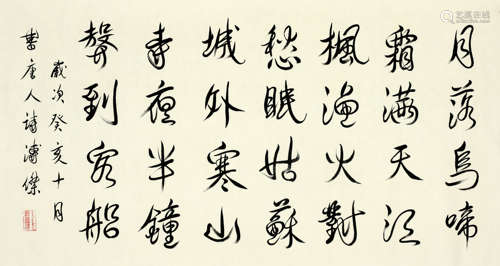 月落烏啼
霜滿天江
楓漁火對
愁眠姑蘇
城外寒山
寺夜半鐘
聲到客船
歲次癸亥十月
書唐人詩溥傑